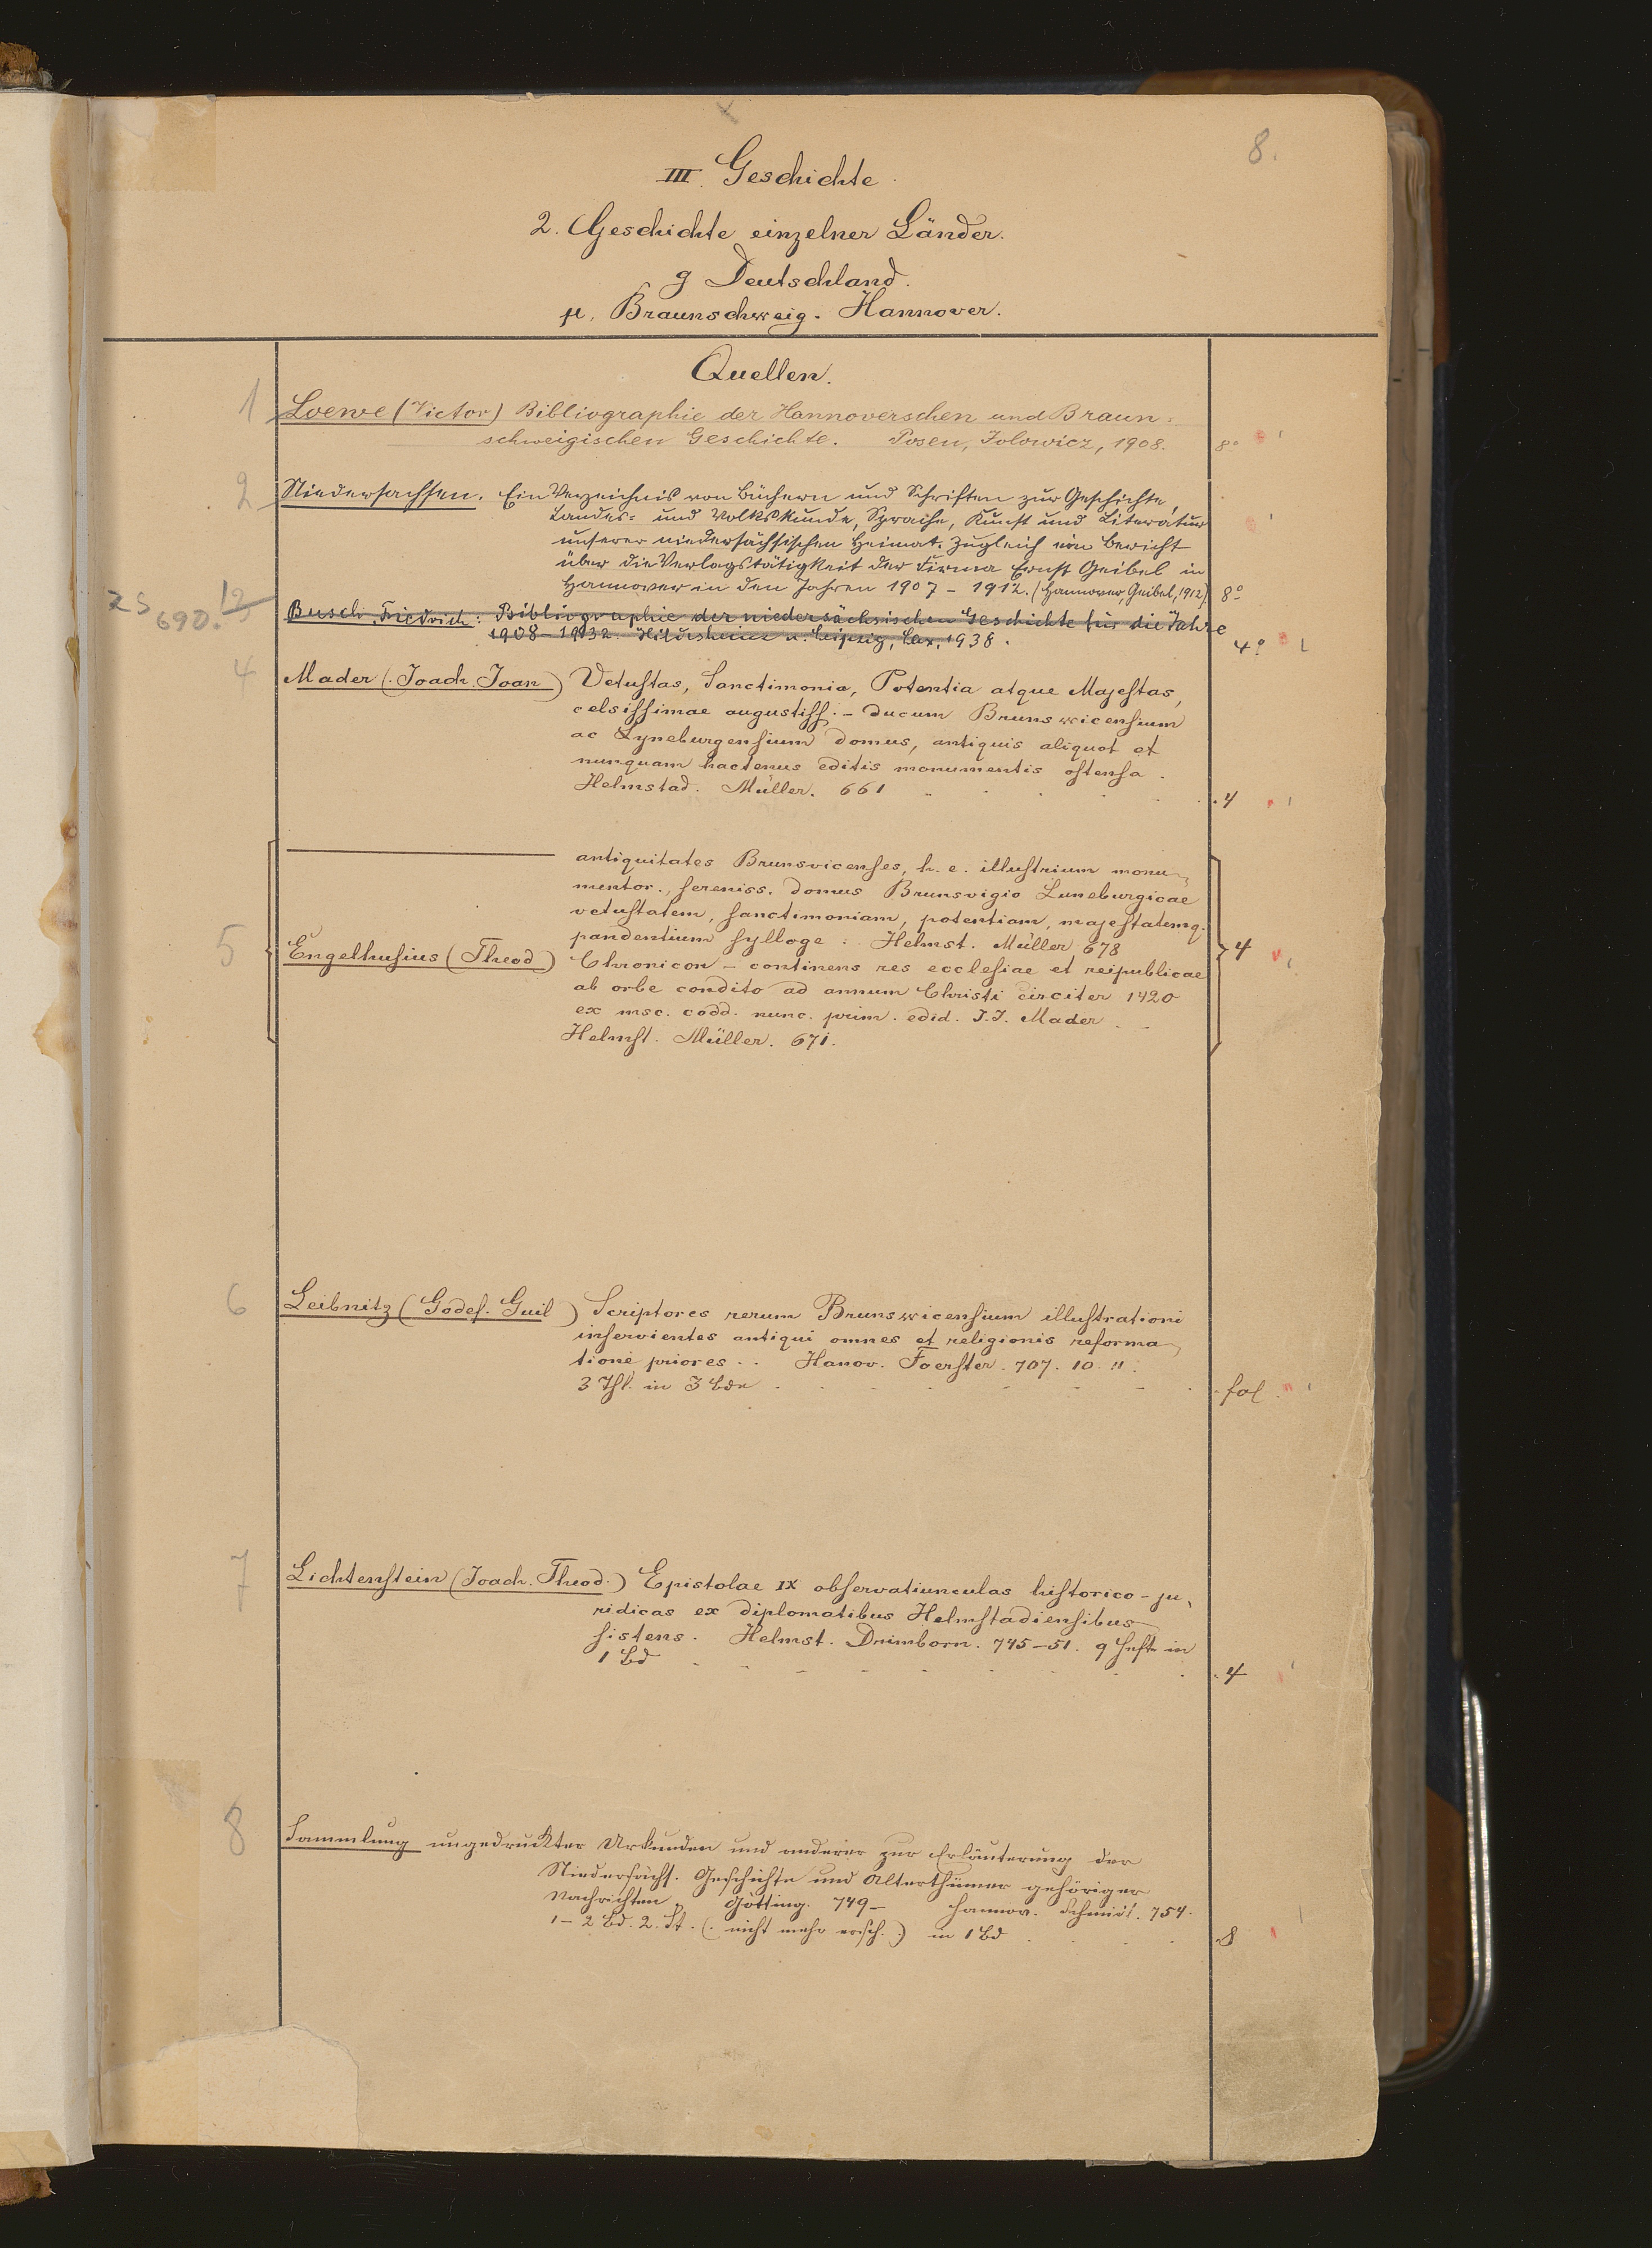 8.
III. Geschichte.
2. Geschichte einzelner Länder.
g Deutschland.
μ. Braunschweig. Hannover.
Quellen.
1 Loewe (Victor) Bibliographie der Hannoverschen und Braun=
schweigischen Geschichte. Posen, Jolowicz, 1908. 8°
2 Niedersachsen. Ein Verzeichnis von Büchern und Schriften zur Geschichte,
Landes= und Volkskunde, Sprache, Kunst und Literatur
unserer niedersächsischen Heimat. Zugleich ein Bericht
über die Verlagstätigkeit der Firma Ernst Geibel in
Hannover in den Jahren 1907 – 1912. (Hannover, Geibel, 1912) 8°
ZS 690.
Busch, Friedrich: Bibliographie der niedersächsischen Geschichte für die Jahre
1908–1932. Hildesheim u. Leipzig, Lax, 1938. 4°
4 Mader (Joach. Joan) Vetustas, Sanctimonia, Potentia atque Majestas,
celsissimae augustiss. – ducum Brunswicensium
ac Lyneburgensium domus, antiquis aliquot et
nunquam hactenus editis monumentis ostensa.
Helmstad. Müller. 661 . 4
antiquitates Brunsvicenses, h. e. illustrium monu-
mentor., sereniss. domus Brunsvigio Luneburgicae
vetustatem, sanctimoniam, potentiam, majestatemq.
pandentium sylloge . . Helmst. Müller 678
5 Engelhusius (Theod) Chronicon – continens res ecclesiae et reipublicae 4
ab orbe condito ad annum Christi circiter 1420
ex msc. codd. nunc. prim. edid. J.J. Mader . –
Helmst. Müller. 671.
6 Leibnitz (Godef. Guil) Scriptores rerum Brunswicensium illustrationi
inservientes antiqui omnes et religionis reforma-
tione priores . . Hanov. Foerster. 707. 10. 11.
3 Thl. in 3 Bde . fol.
7 Lichtenstein (Joach. Theod.) Epistolae IX observatiunculas historico-ju-
ridicas ex diplomatibus Helmstadiensibus
sistens. Helmst. Drimborn. 745–51. 9 Hefte in
1 Bd . 4
8 Sammlung ungedruckter Urkunden und anderer zur Erläuterung der
Niedersächs. Geschichte und Alterthümer gehöriger
Nachrichten. Götting. 749– Hannov. Schmidt. 754.
1–2 Bd. 2. St. (. nicht mehr ersch.) in 1 Bd . 8